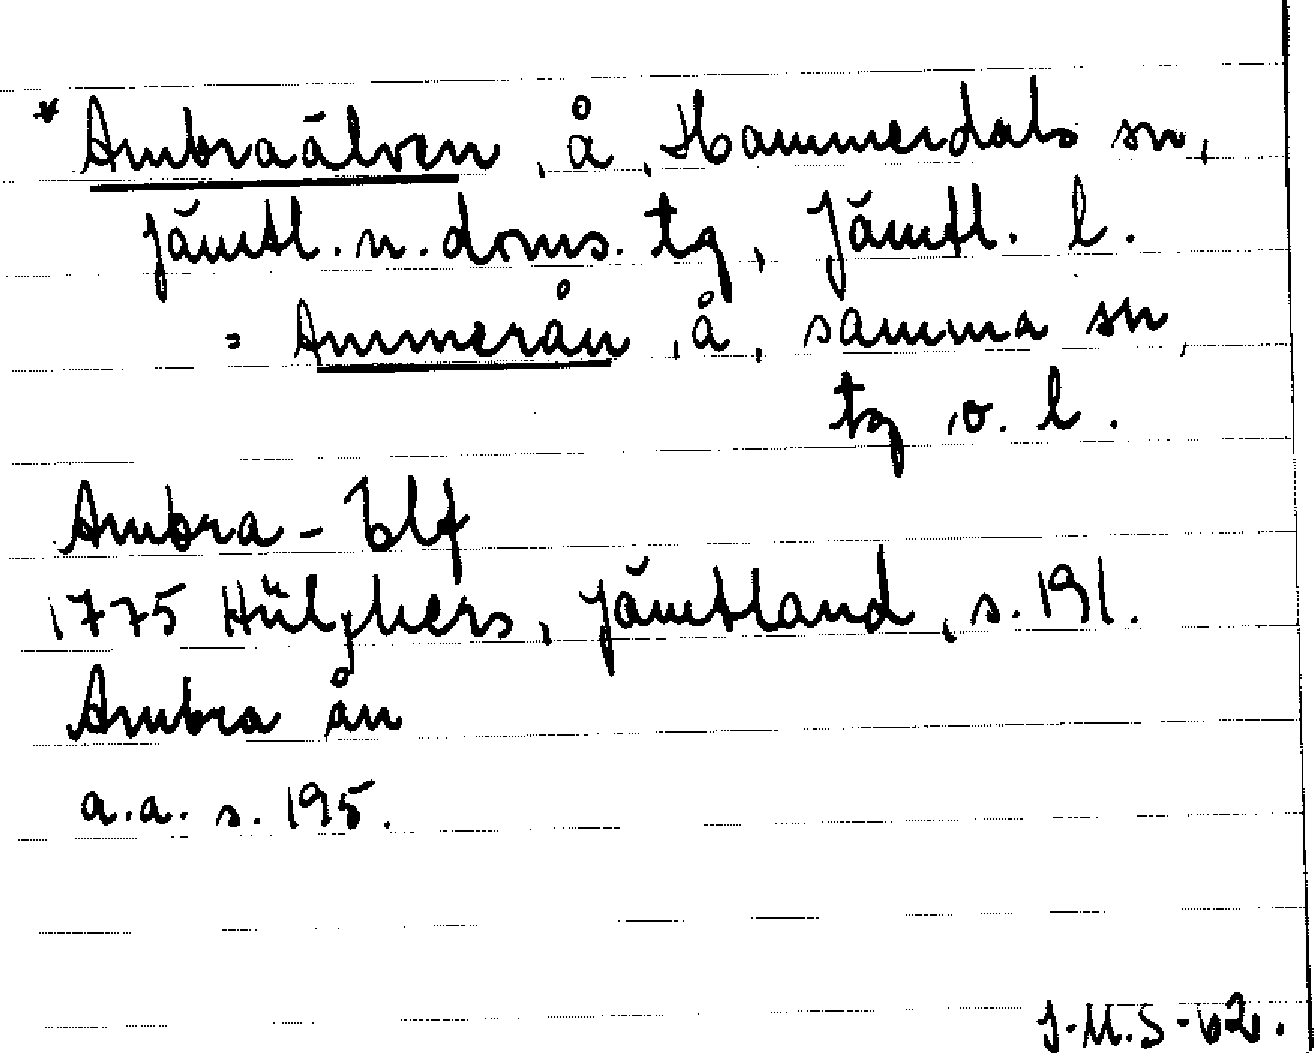 * Ambraälven, å, Hammerdals sn,
Jämtl. n. doms. tg, Jämtl. l.
= Ammerån, å, samma sn,
tg o. l.
Ambra-Elf
1775 Hülphers, Jämtland, s. 191.
Ambra ån
a.a. s. 195.
J.M.S-62.